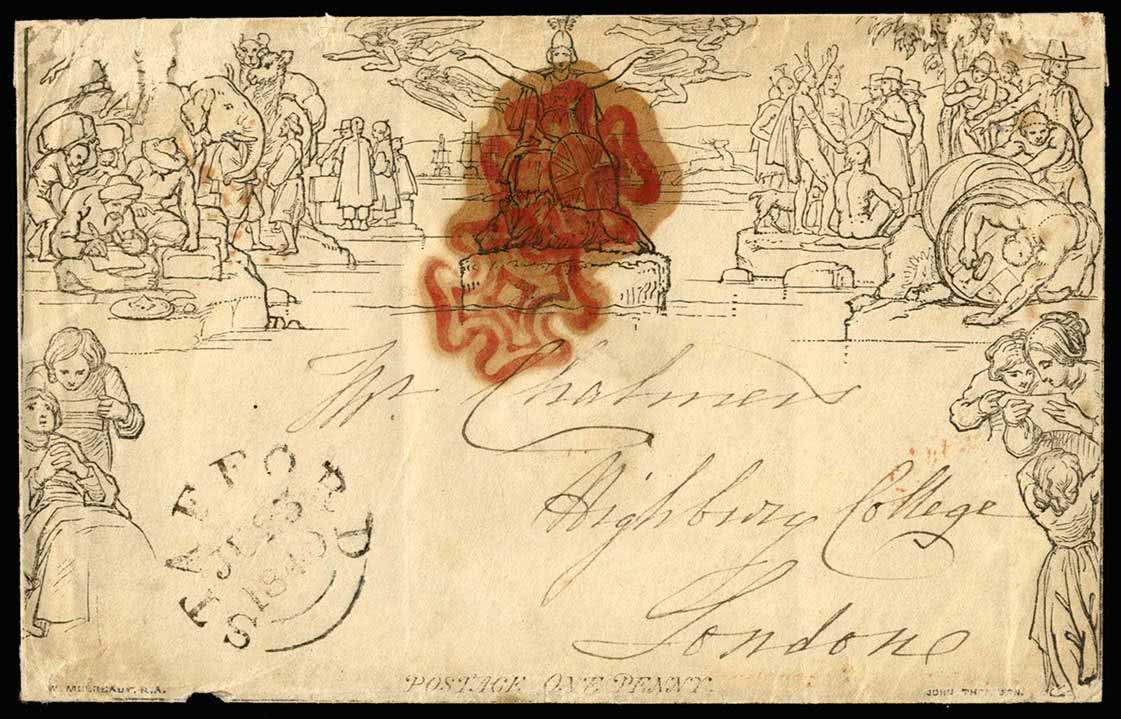 Mr. Chalmers
Highbury College
London
STAFFORD
JU 23
1840
POSTAGE ONE PENNY.
W. MULREADY. R.A.
JOHN THOMPSON.